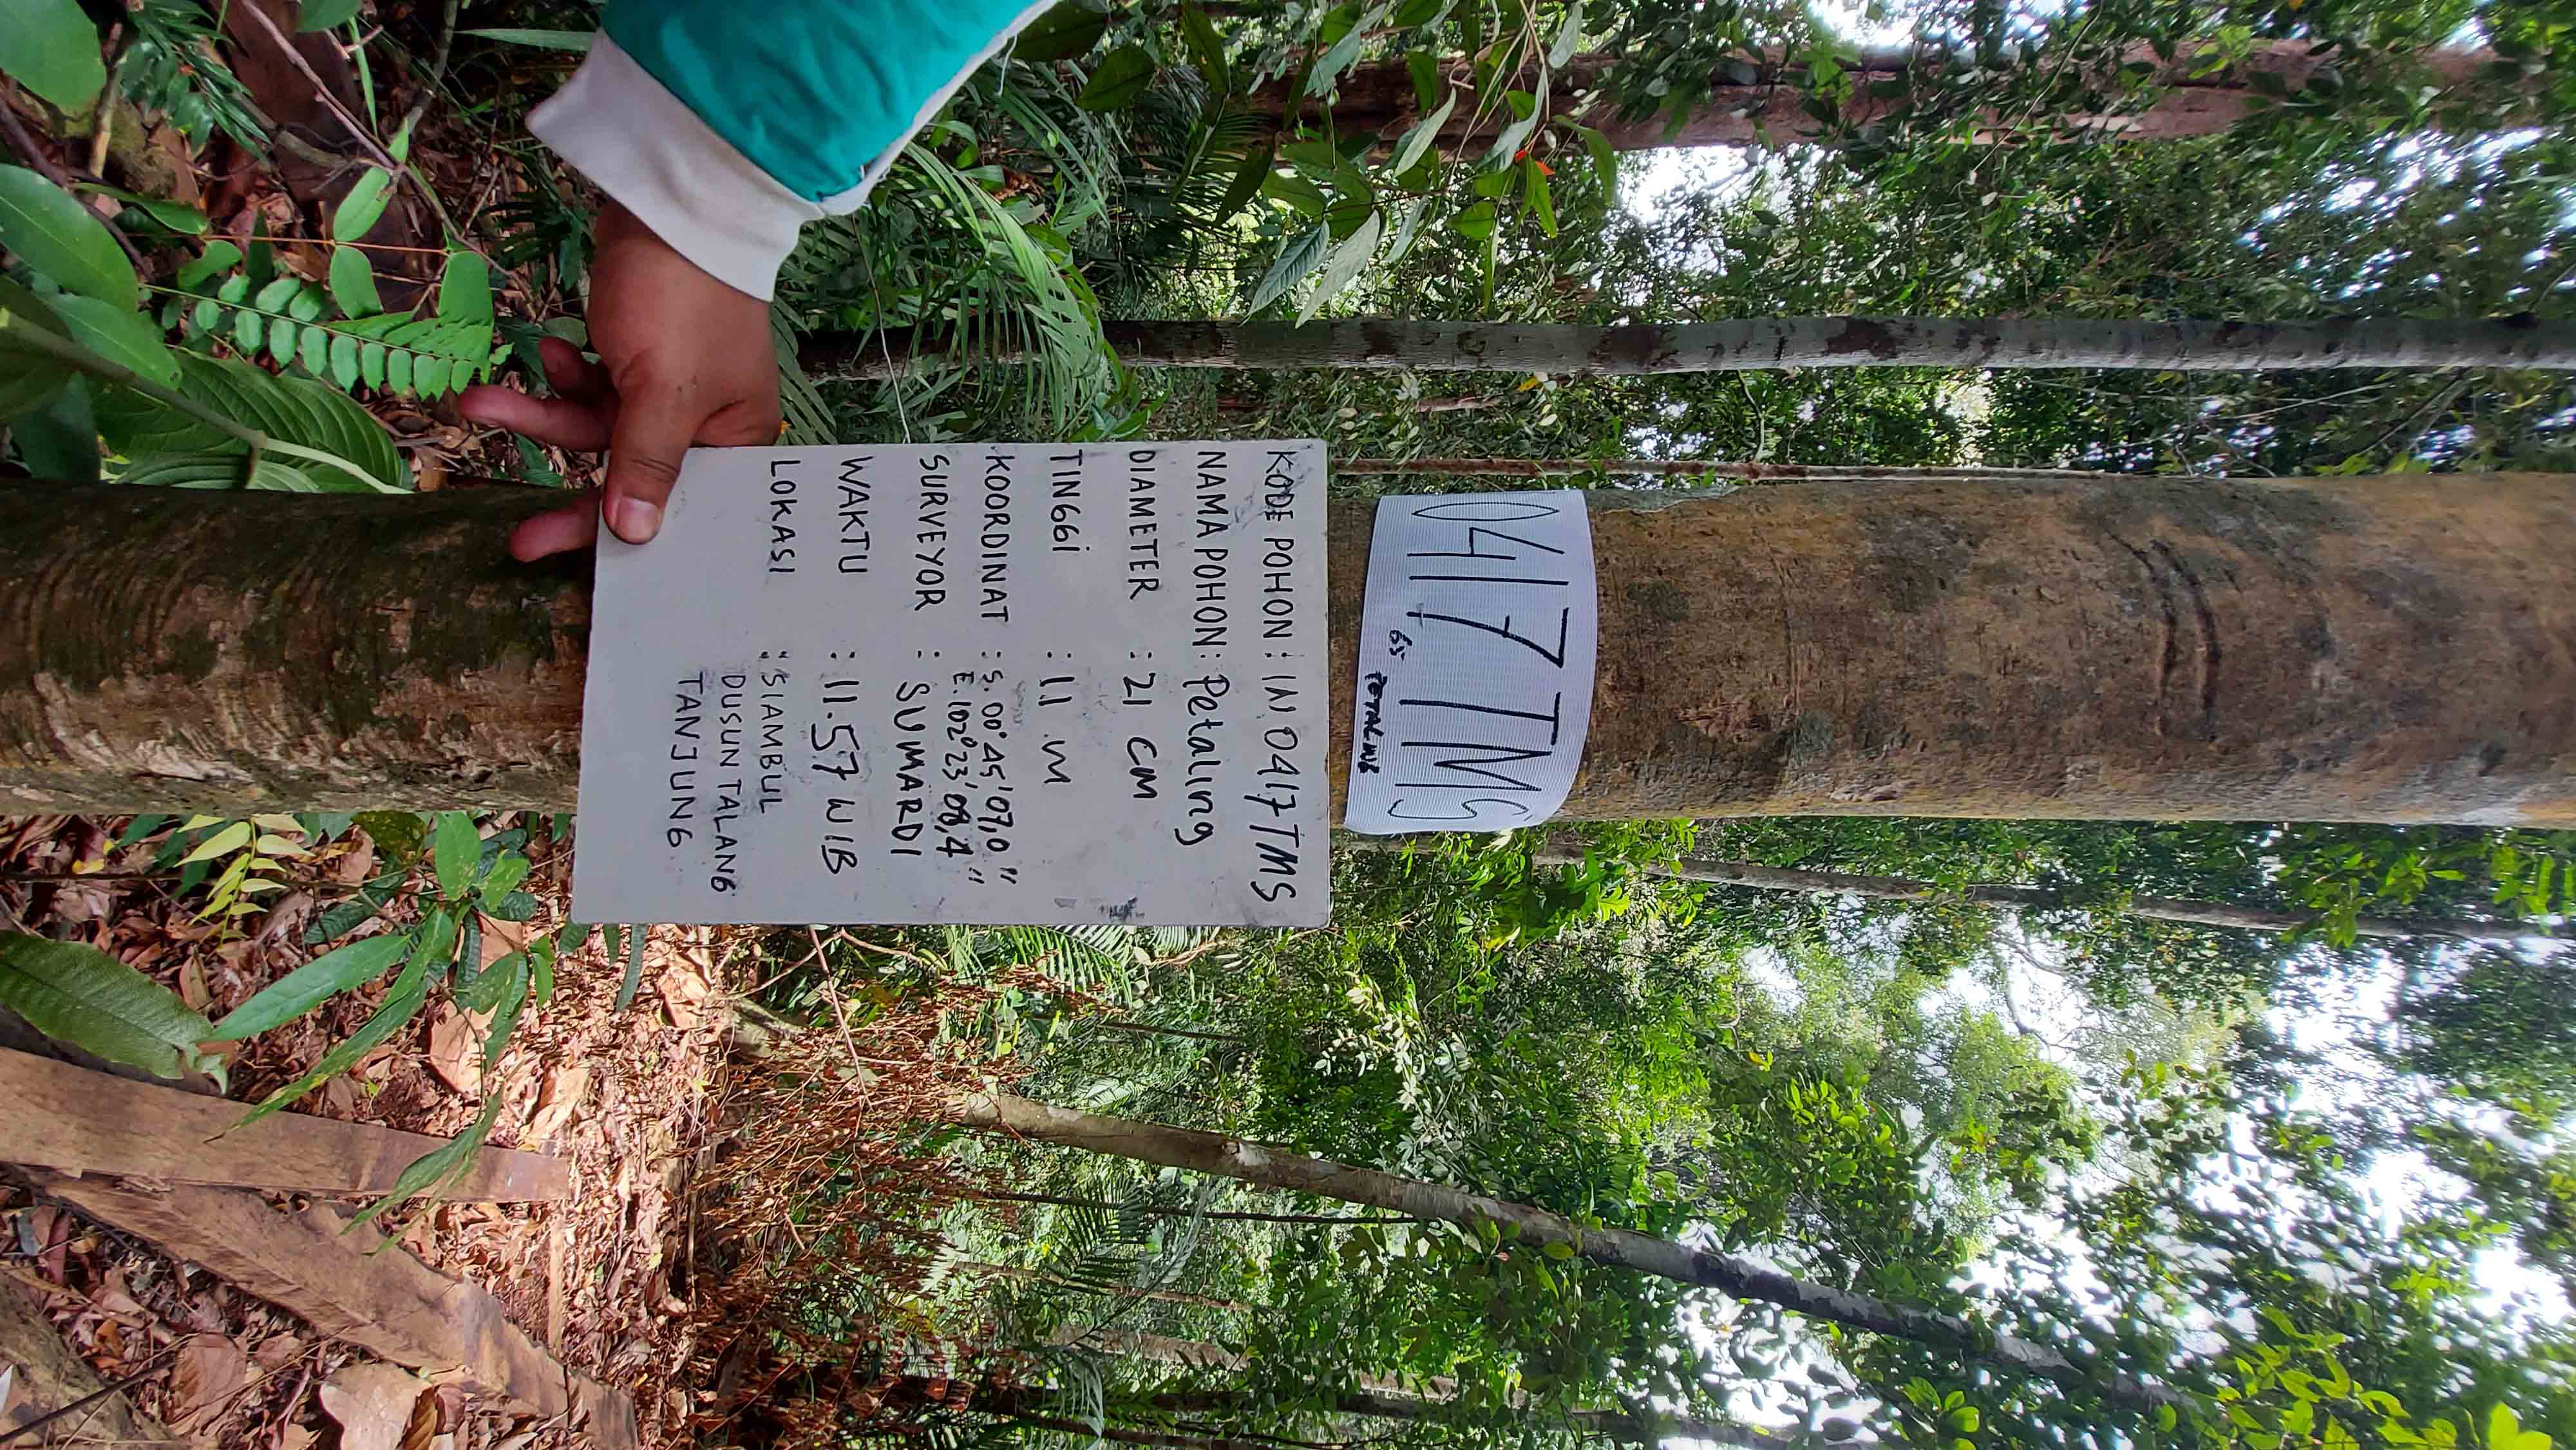 0417 TMS
65 PETALING
KODE POHON : IN 0417 TMS
NAMA POHON : Petaling
DIAMETER : 21 CM
TINGGI : 11 m
KOORDINAT : S. 00° 45' 07,0"
E. 102° 23' 08,4"
SURVEYOR : SUMARDI
WAKTU : 11.57 WIB
LOKASI : SIAMBUL
DUSUN TALANG
TANJUNG